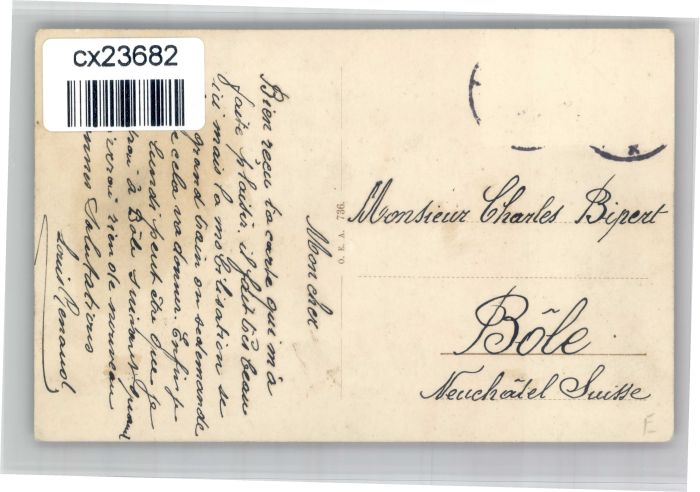 cx23682
Mon cher
Bien reçu ta carte qui m'a
faite plaisir. il fait très beau
ici mais la mobilisation se
grand train on se demande
cela va donner. Enfin je
Lundi peut être que je
à Bôle suivant quand
rien de nouveau
Salutations
Louis Renaud
O. E. A. 736.
Monsieur Charles Bipert
Bôle
Neuchâtel Suisse
E